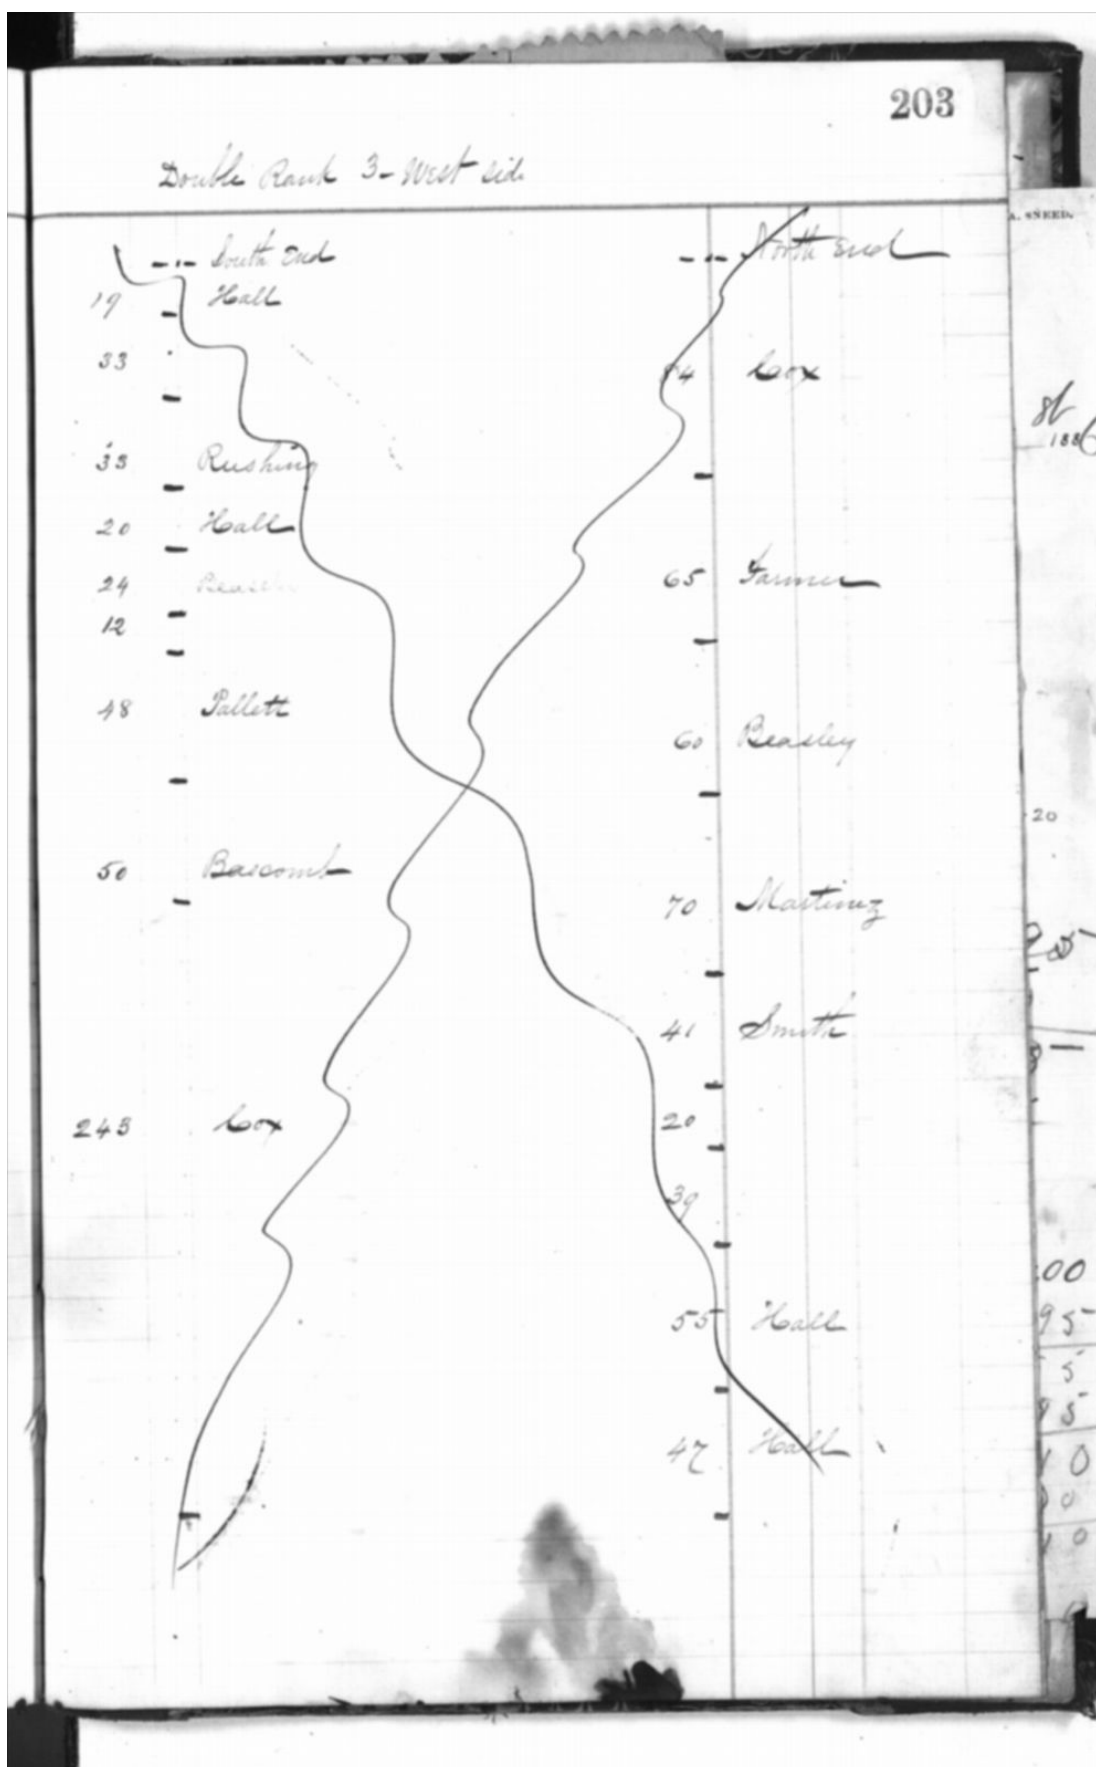 203
Double Rank 3- West side
South End
19 Hall
33
33 Rushing
20 Hall
24
12
48 Pallett
50 Bascomb
245 Cox
North End
Cox
65 Farmer
60 Beasley
70 Martinez
41 Smith
20
39
55 Hall
47 Hall
A. SNEED.
188
20
00
95
5
95
10
10